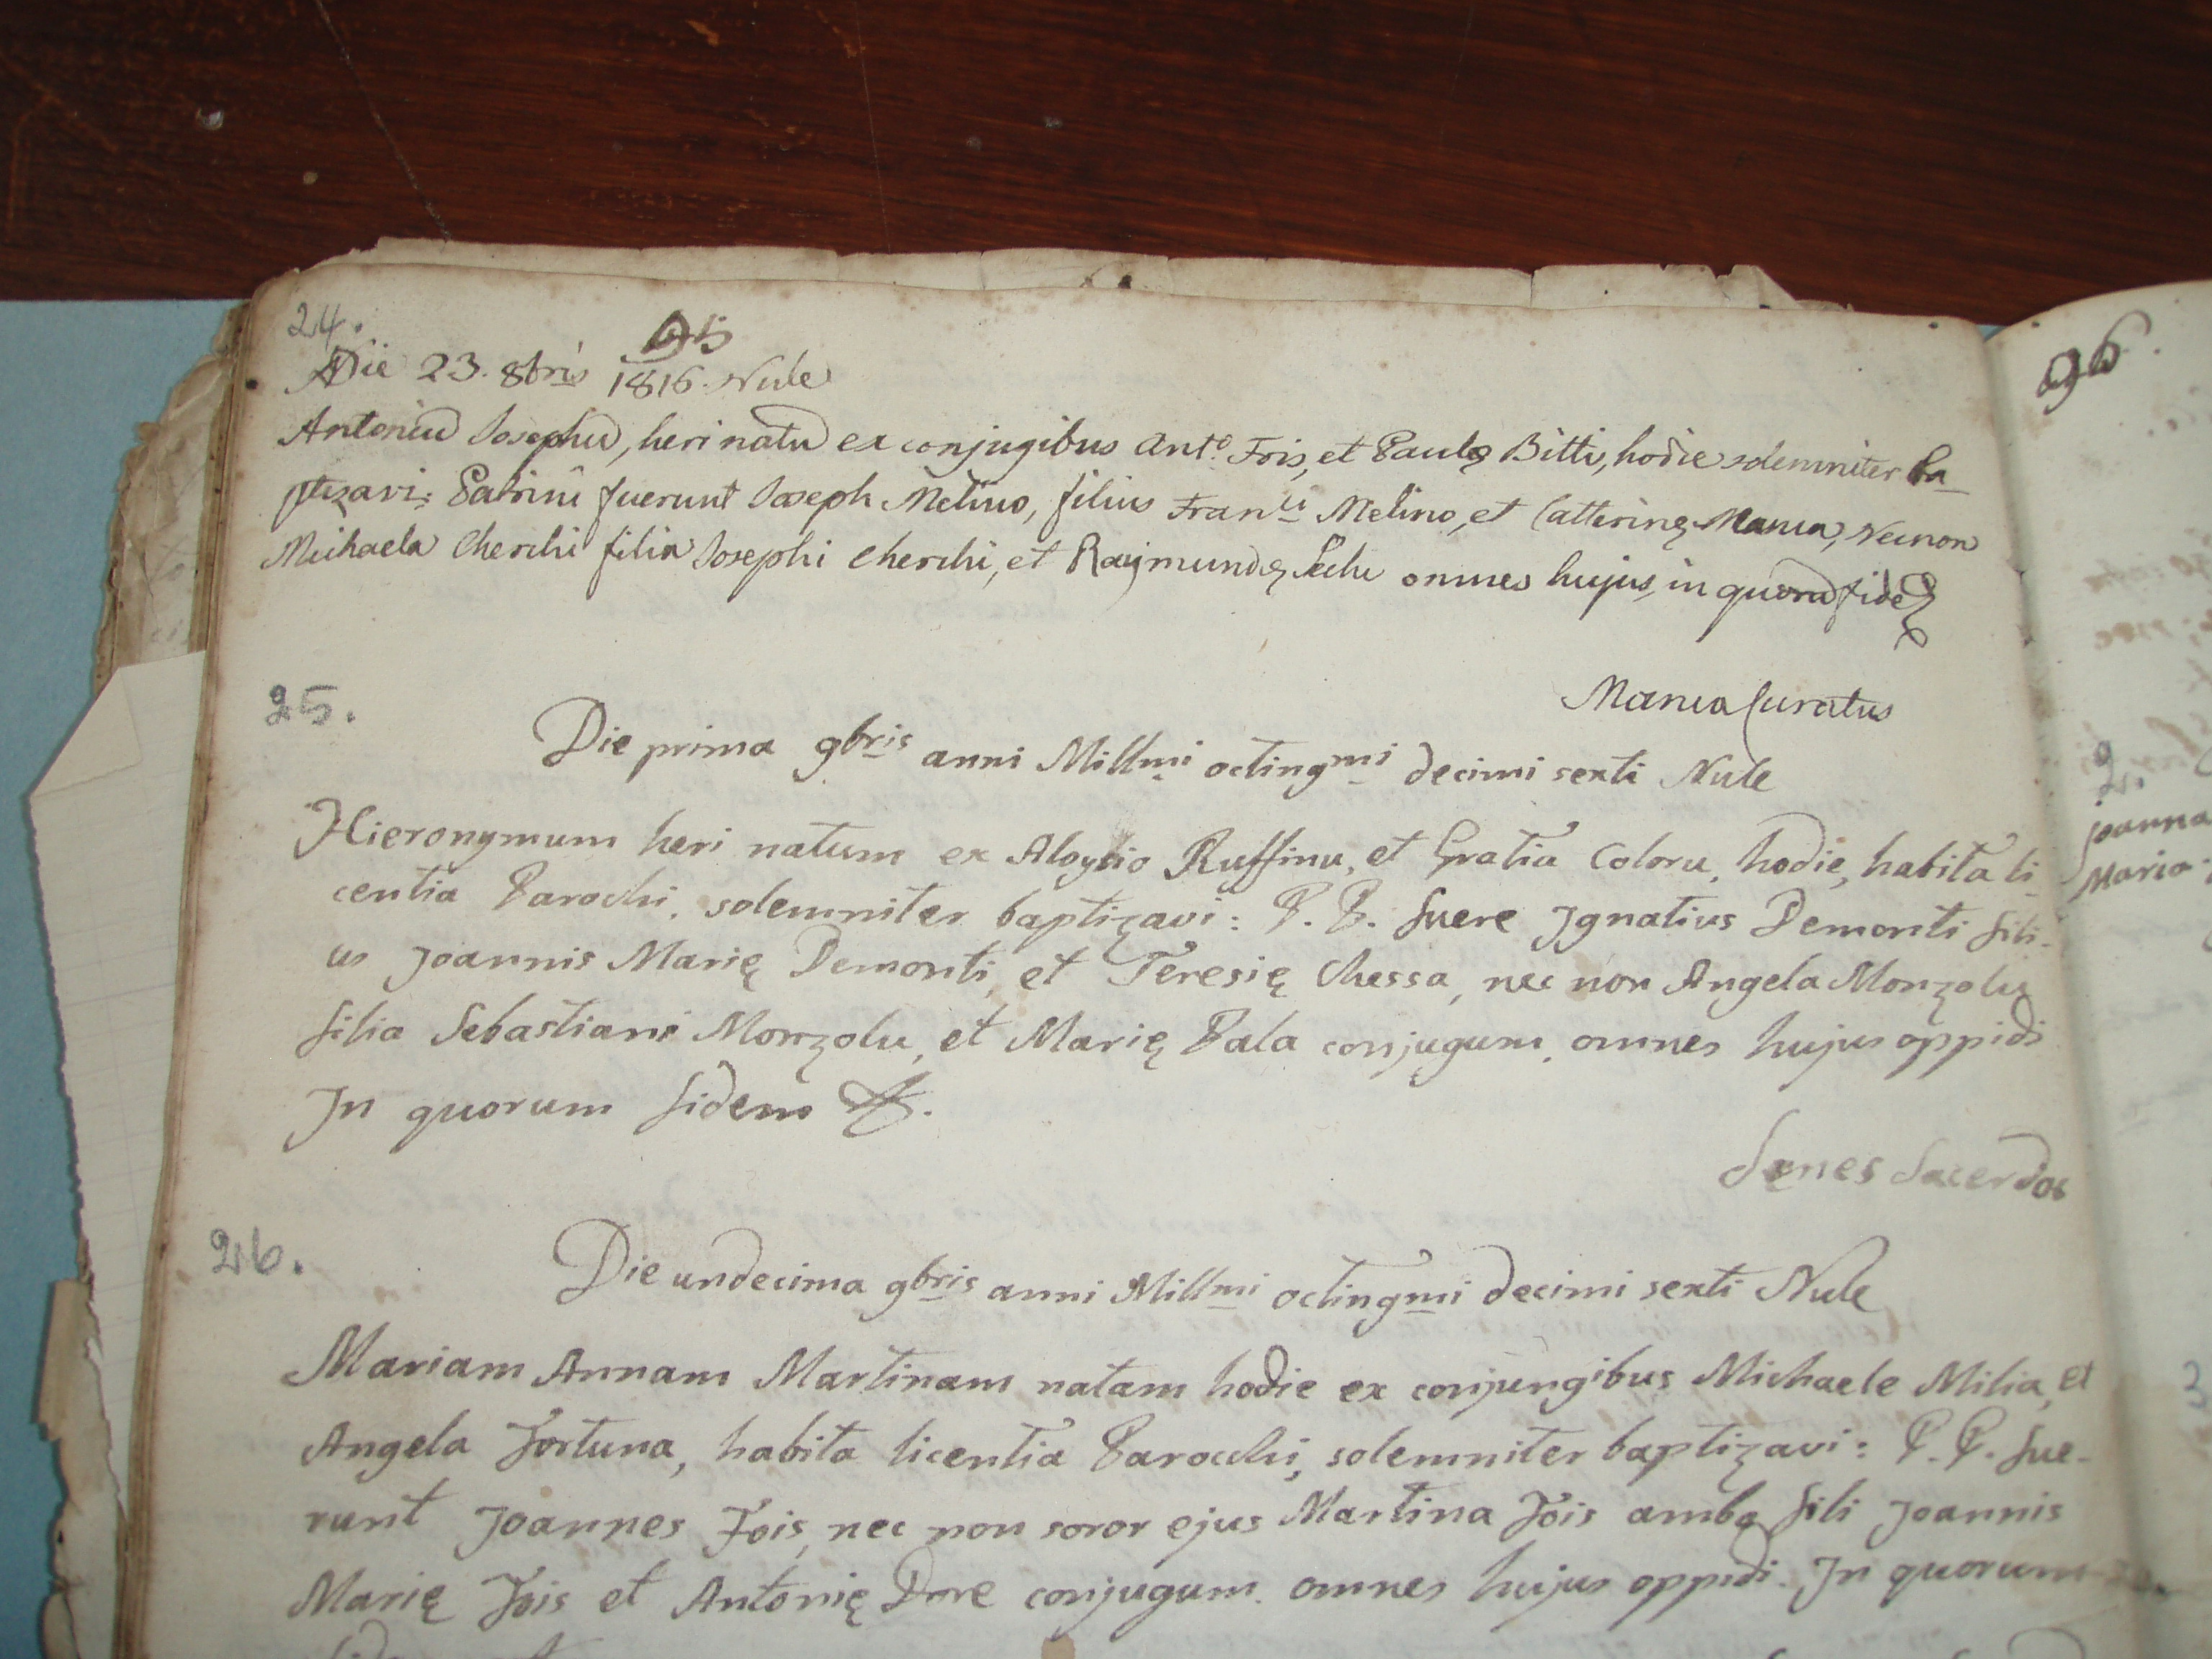 24.
95
Die 23. 8bris 1816. Nule
Antoniũ Josephũ, heri natũ ex conjugibus Ant.o Fois, et Paulę Bitti, hodie solemniter ba-
ptizavi: Patrini fuerunt Joseph Melino, filius Franci Melino, et Catterinę Manca, Necnon
Michaela Cherchi filia Josephi Cherchi, et Raymundę Sechi omnes hujus, in quorũ fidẽ
Manca Curatus
25.
Die prima 9bris anni Millmi octingmi decimi sexti Nule
Hieronymum heri natum ex Aloysio Ruffinu, et Gratia Coloru, hodie, habita li-
centia Parochi, solemniter baptizavi: P. P. fuere Jgnatius Demonti fili-
us Joannis Marię Demonti, et Teresię Chessa, nec non Angela Monzolu
filia Sebastiani Monzolu, et Marię Pala conjugum, omnes hujus oppidi
Jn quorum fidem &.
Senes Sacerdos
26.
Die undecima 9bris anni Millmi octingmi decimi sexti Nule
Mariam Annam Martinam natam hodie ex conjungibus Michaele Milia, et
Angela Fortuna, habita licentia Parochi, solemniter baptizavi: P. P. fue-
runt Joannes Fois, nec non soror ejus Martina Fois ambo fili Joannis
Marię Fois et Antonię Dore conjugum. omnes hujus oppidi. Jn quorum
96.
2.
Joanna
Maria
3